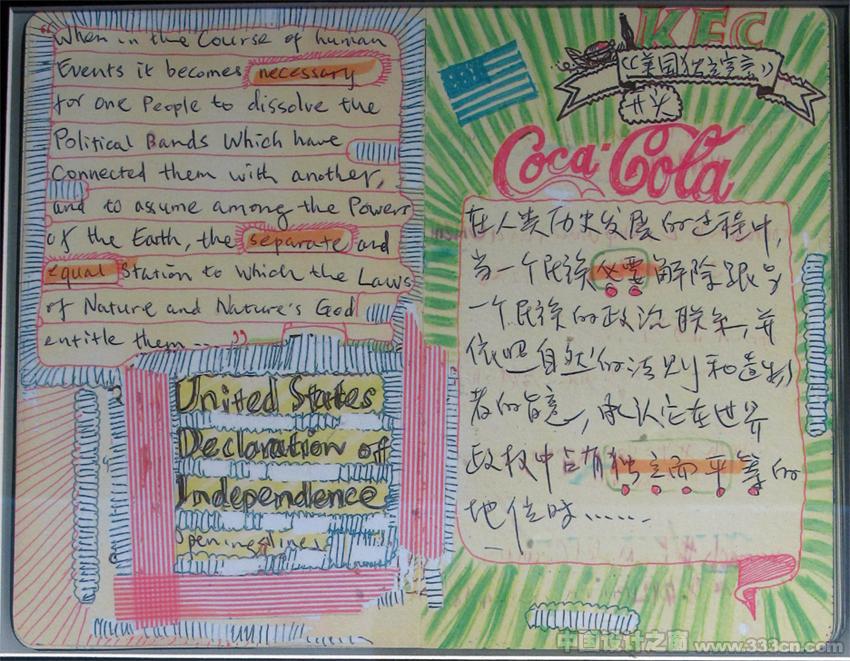 "When in the Course of human
Events it becomes necessary
for one People to dissolve the
Political Bands Which have
Connected them with another,
and to assume among the Powers
of the Earth, the separate and
equal Station to Which the Laws
of Nature and Nature's God
entitle them...."
United States
Declaration of
Independence
Opening lines
KFC
《美国独立宣言》
开头
Coca-Cola
在人类历史发展的过程中,
当一个民族必要解除跟另
一个民族的政治联系,并
依照自然的法则和造物
者的旨意,承认它在世界
政权中占有独立而平等的
地位时……
中国设计之窗 www.333cn.com